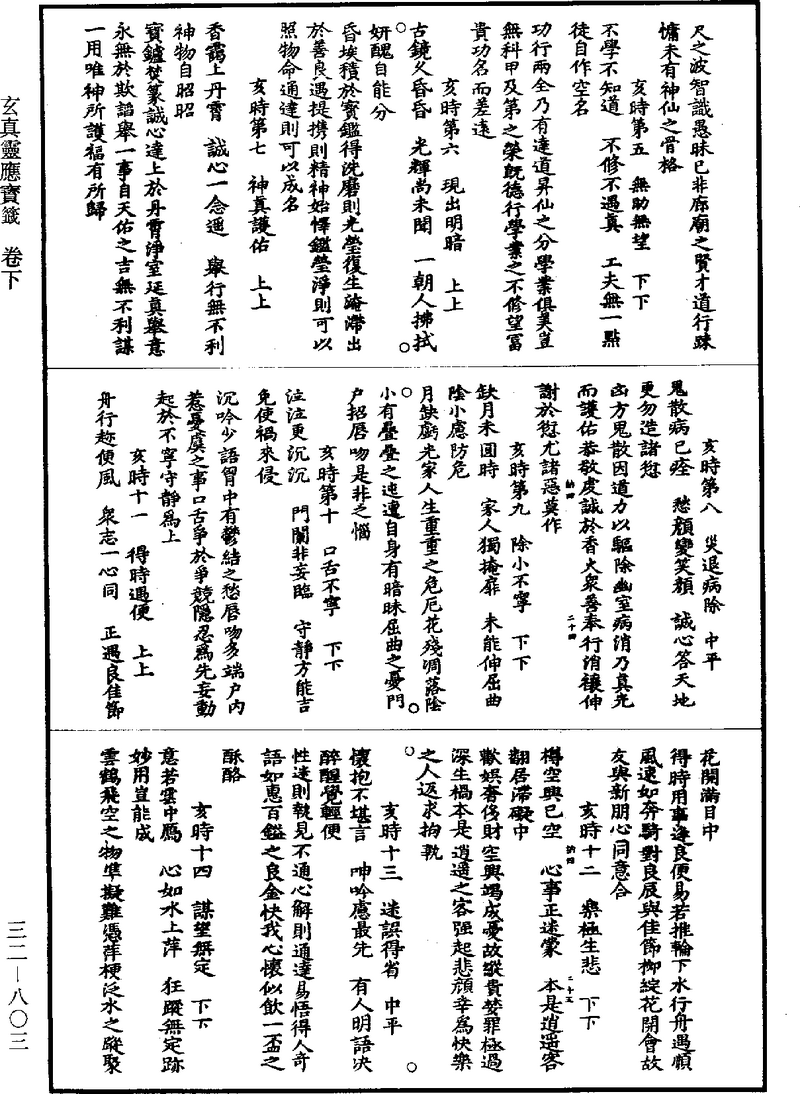 玄真靈應寶籤　卷下
三二—八〇三
尺之波智識愚昧已非廊廟之賢才道行踈
慵未有神仙之骨格
亥時第五　無助無望　下下
不學不知道　不修不遇真　工夫無一點
徒自作空名
功行兩全乃有達道昇仙之分學業俱美豈
無科甲及第之榮既德行學業之不修望冨
貴功名而差遠
亥時第六　現出明暗　上上
古鏡久昏昏　光輝尚未聞　一朝人拂拭
妍醜自能分
昏埃積於寳鑑得洗磨則光瑩復生淹滯出
於善良遇提携則精神始懌鑑瑩淨則可以
照物命通達則可以成名
亥時第七　神真護佑　上上
香靄上丹霄　誠心一念通　舉行無不利
神物自昭昭
寳鑪焚篆誠心達上於丹霄淨室廷真舉意
永無於欺謟舉一事自天佑之吉無不利謀
一用唯神所護福有所歸
亥時第八　災退病除　中平
鬼散病已痊　愁顔變笑顔　誠心答天地
更勿造諸愆
凶方鬼散因道力以驅除幽室病消乃真光
而護佑恭敬虔誠於香火衆善奉行消禳伸
謝於愆尤諸惡莫作
亥時第九　除小不寧　下下
缺月未圓時　家人獨掩扉　未能伸屈曲
陰小慮防危
月缺虧光家人生重重之危厄花殘凋落陰
小有疊疊之迍邅自身有暗昧屈曲之憂門
户招唇吻是非之惱
亥時第十　口舌不寧　下下
泣泣更沉沉　門闌非妄臨　守靜方能吉
免使禍來侵
沉吟少語胷中有鬱結之愁唇吻多端户内
惹憂虞之事口舌爭於爭競隱忍爲先妄動
起於不寧守靜爲上
亥時十一　得時遇便　上上
舟行趂便風　衆志一心同　正遇良佳節
花開滿目中
得時用事逢良便易若推輪下水行舟遇順
風速如奔騎對良辰與佳節柳綻花開會故
友與新朋心同意合
亥時十二　樂極生悲　下下
樽空興已空　心事正迷蒙　本是逍遥客
翻居滯礙中
歡娱奢侈財空興竭成憂故縱貴婪罪極過
深生禍本是逍遥之客强起悲顔幸爲快樂
之人返求拍執
亥時十三　迷誤得省　中平
懷抱不堪言　呻吟慮最先　有人明語决
醉醒覺輕便
性達則執見不通心解則通達易悟得人竒
語如惠百鎰之良金快我心懷似飲一盃之
酥酪
亥時十四　謀望無定　下下
意若雲中鴈　心如水上萍　狂蹤無定跡
妙用豈能成
雲鶴飛空之物準擬難憑萍梗泛水之蹤聚